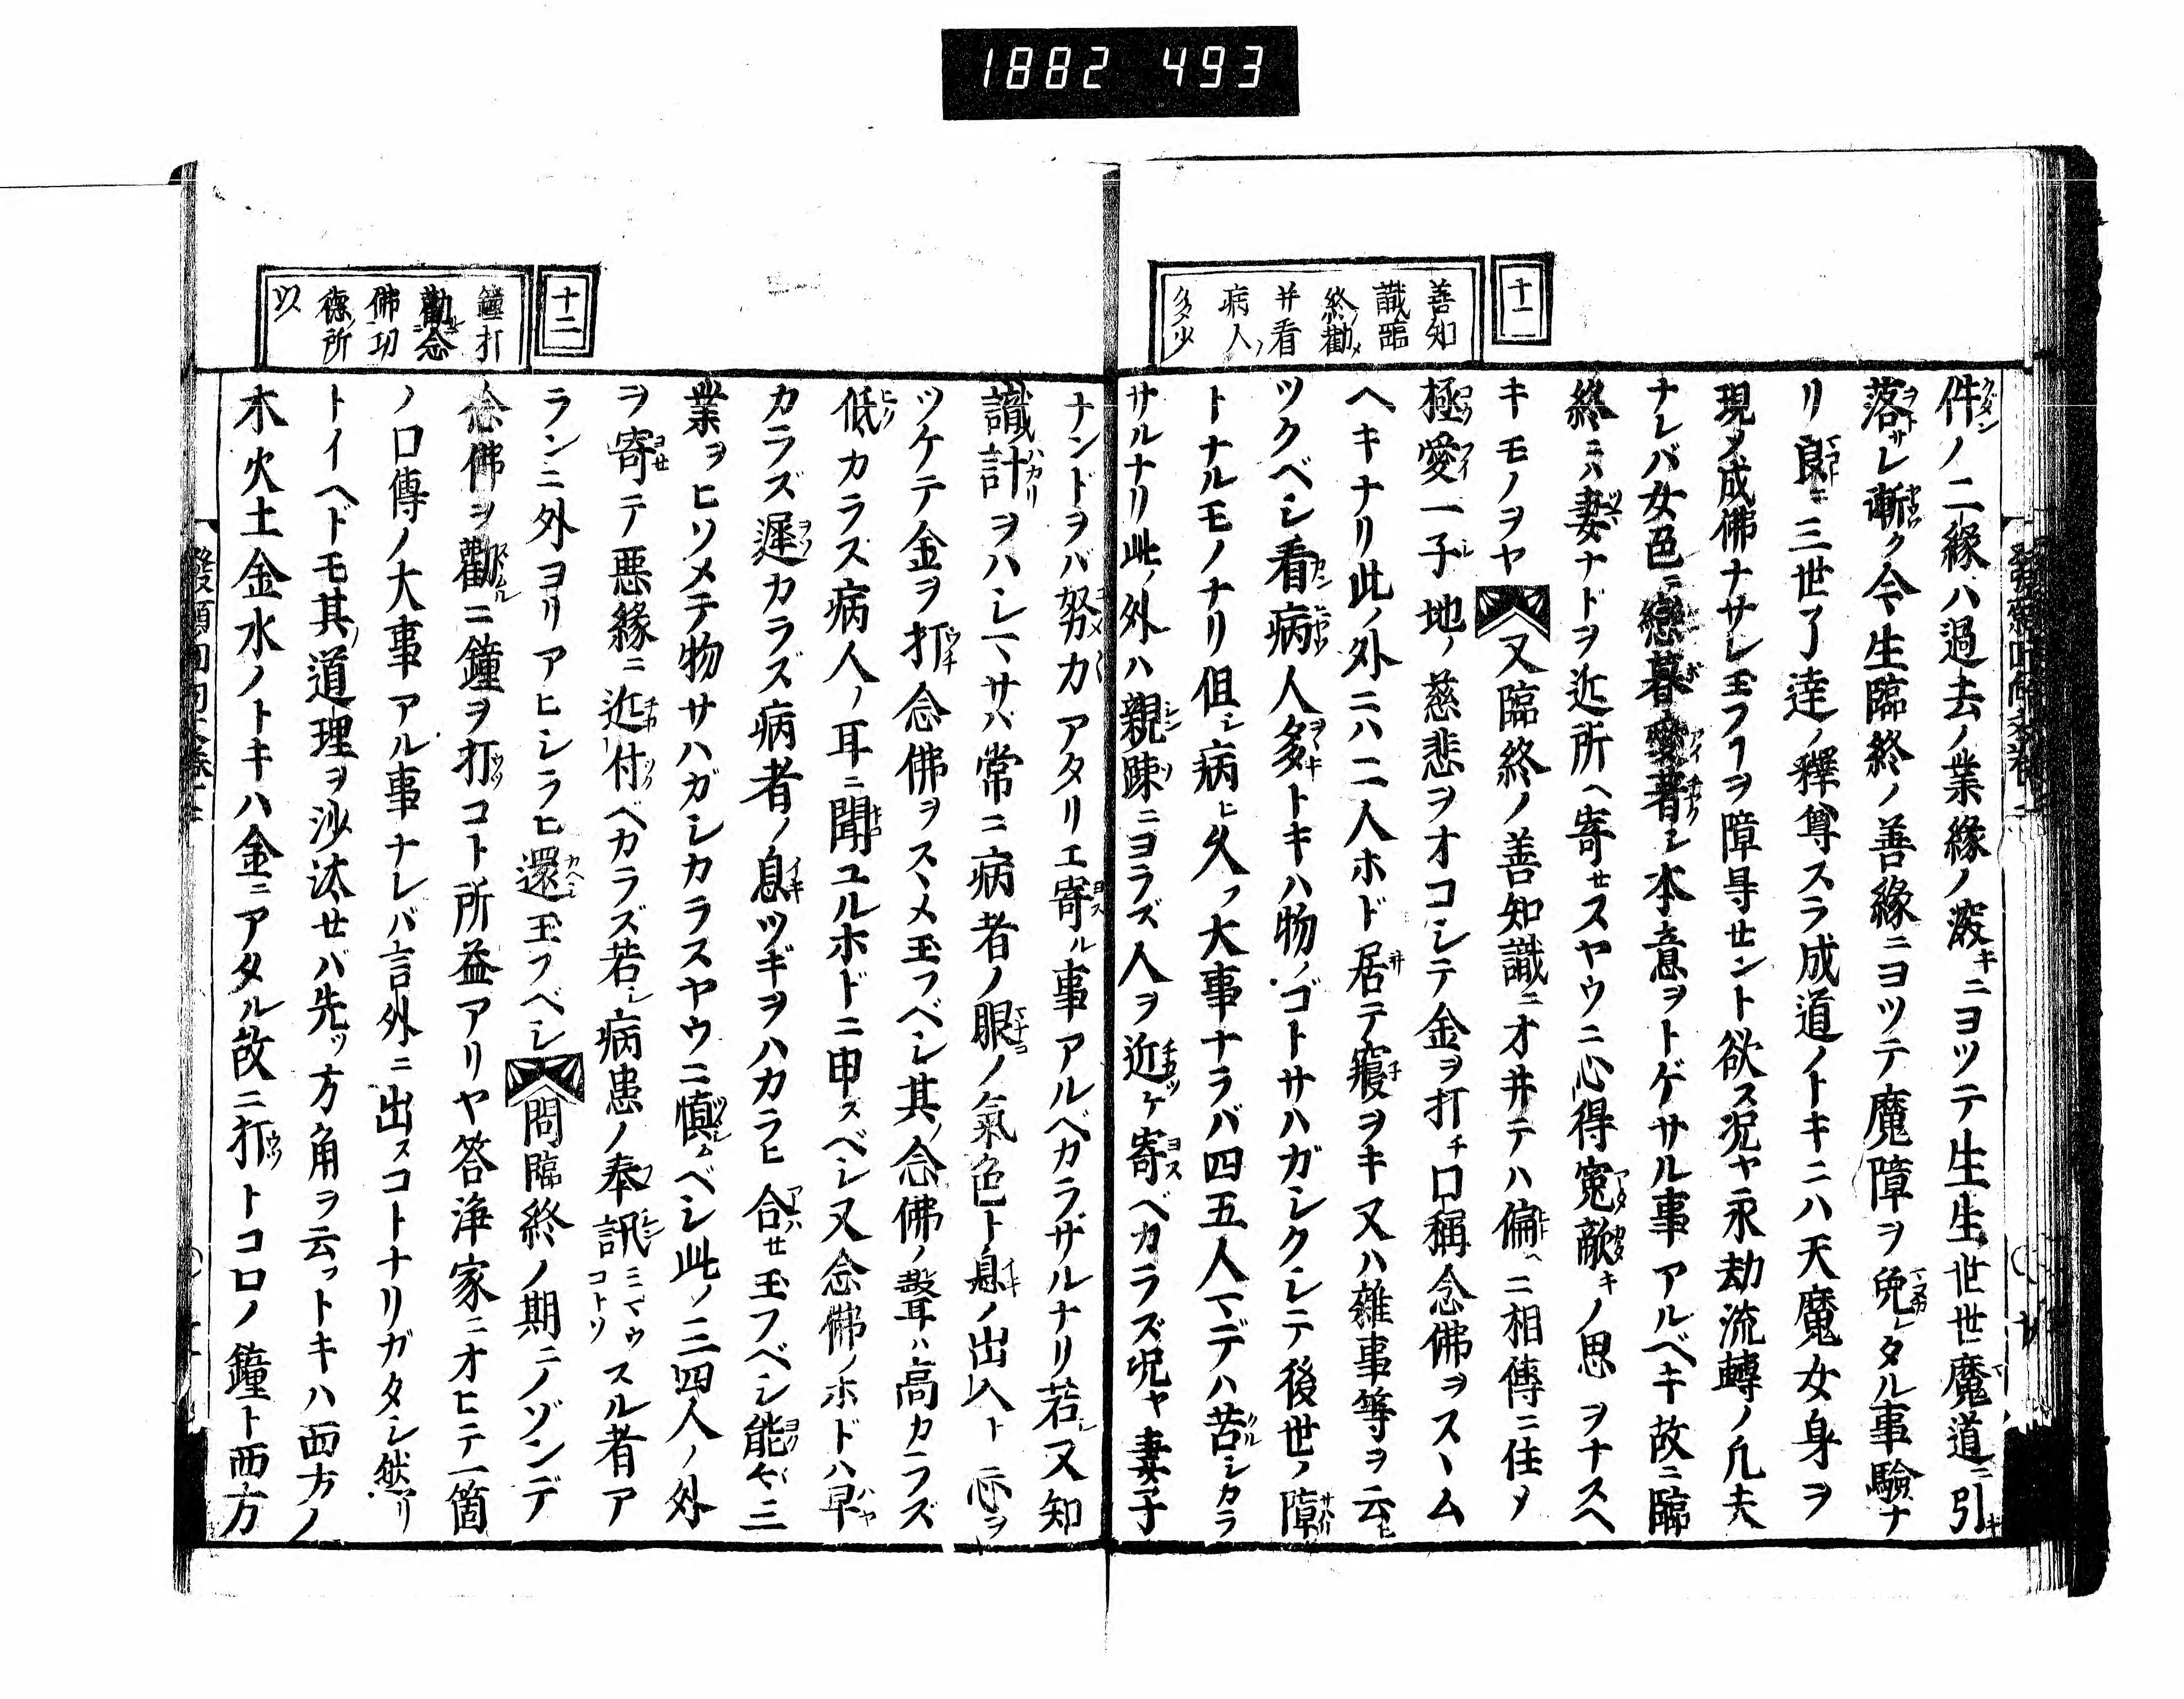 1882 493
十一
善知
識臨
終ノ勸メ
并看
病人ノ
多少
件ノ二緣ハ過去ノ業緣ノ深キニヨツテ生生世世魔道ニ引キ
落サレ漸ク今生臨終ノ善緣ニヨツテ魔障ヲ免レタル事驗ナ
リ良ニ三世了達ノ釋尊スラ成道ノトキニハ天魔女身ヲ
現メ成佛ナサレ玉フヿヲ障㝵せント欲ス况ヤ永劫流轉ノ凡夫
ナレバ女色ニ戀慕愛著シ本意ヲトゲサル事アルベキ故ニ臨
終ニハ妻ナドヲ近所ヘ寄せスヤウニ心得寃敵キノ思ヲナスヘ
キモノヲヤ又臨終ノ善知識ニオ井テハ偏ヘニ相傳ニ住メ
極愛一子地ノ慈悲ヲオコシテ金ヲ打チ口稱念佛ヲスヽム
ヘキナリ此ノ外ニハ二人ホド居テ寢ヲキ又ハ雜事等ヲ云ヒ
ツクベシ看病人多キトキハ物ノゴトサハガシクシテ後世ノ障
トナルモノナリ但シ病ヒ久ク大事ナラバ四五人マデハ苦シカラ
サルナリ此ノ外ハ親踈ニヨラズ人ヲ近ツケ寄ベカラズ况ヤ妻子
ナンドヲバ努力アタリエ寄ル事アルベカラザルナリ若シ又知
識計ヲハシマサハ常ニ病者ノ眼ノ氣色ト息ノ出入ト心ヲ
ツケテ金ヲ打念佛ヲスヽメ玉フベシ其ノ念佛ノ聲ハ高カラズ
低カラス病人ノ耳ニ聞ユルホドニ申スベシ又念佛ノホドハ早
カラズ遲カラズ病者ノ息ツギヲハカラヒ合せ玉フベシ能々三
業ヲヒソメテ物サハガシカラスヤウニ愼ムベシ此ノ三四人ノ外
ヲ寄テ惡緣ニ近付ベカラズ若シ病患ノ奉訊ミマウコトヲスル者ア
ランニ外ヨリアヒシラヒ還玉フベシ問臨終ノ期ニノゾンデ
念佛ヲ勸ニ鐘ヲ打コト所益アリヤ答淨家ニオヒテ一箇
ノ口傳ノ大事アル事ナレバ言外ニ出スコトナリガタシ然リ
トイヘドモ其ノ道理ヲ沙汰せバ先ツ方角ヲ云フトキハ西方ノ
木火土金水ノトキハ金ニアタル故ニ打トコロノ鐘ト西方
十二
鐘打
勸念
佛功
德ノ所
以